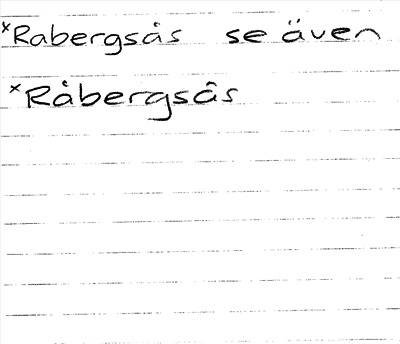 *Rabergsås se även
*Råbergsås